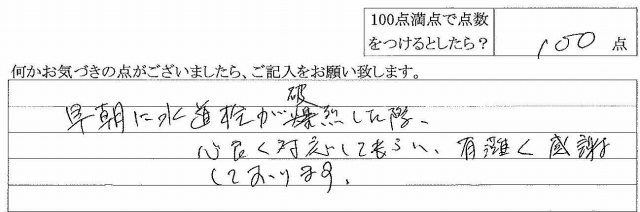 100点満点で点数
をつけるとしたら？
100 点
何かお気づきの点がございましたら、ご記入をお願い致します。
破
早朝に水道栓が爆烈した際、
心良く対応してもらい、有難く感謝
しております。